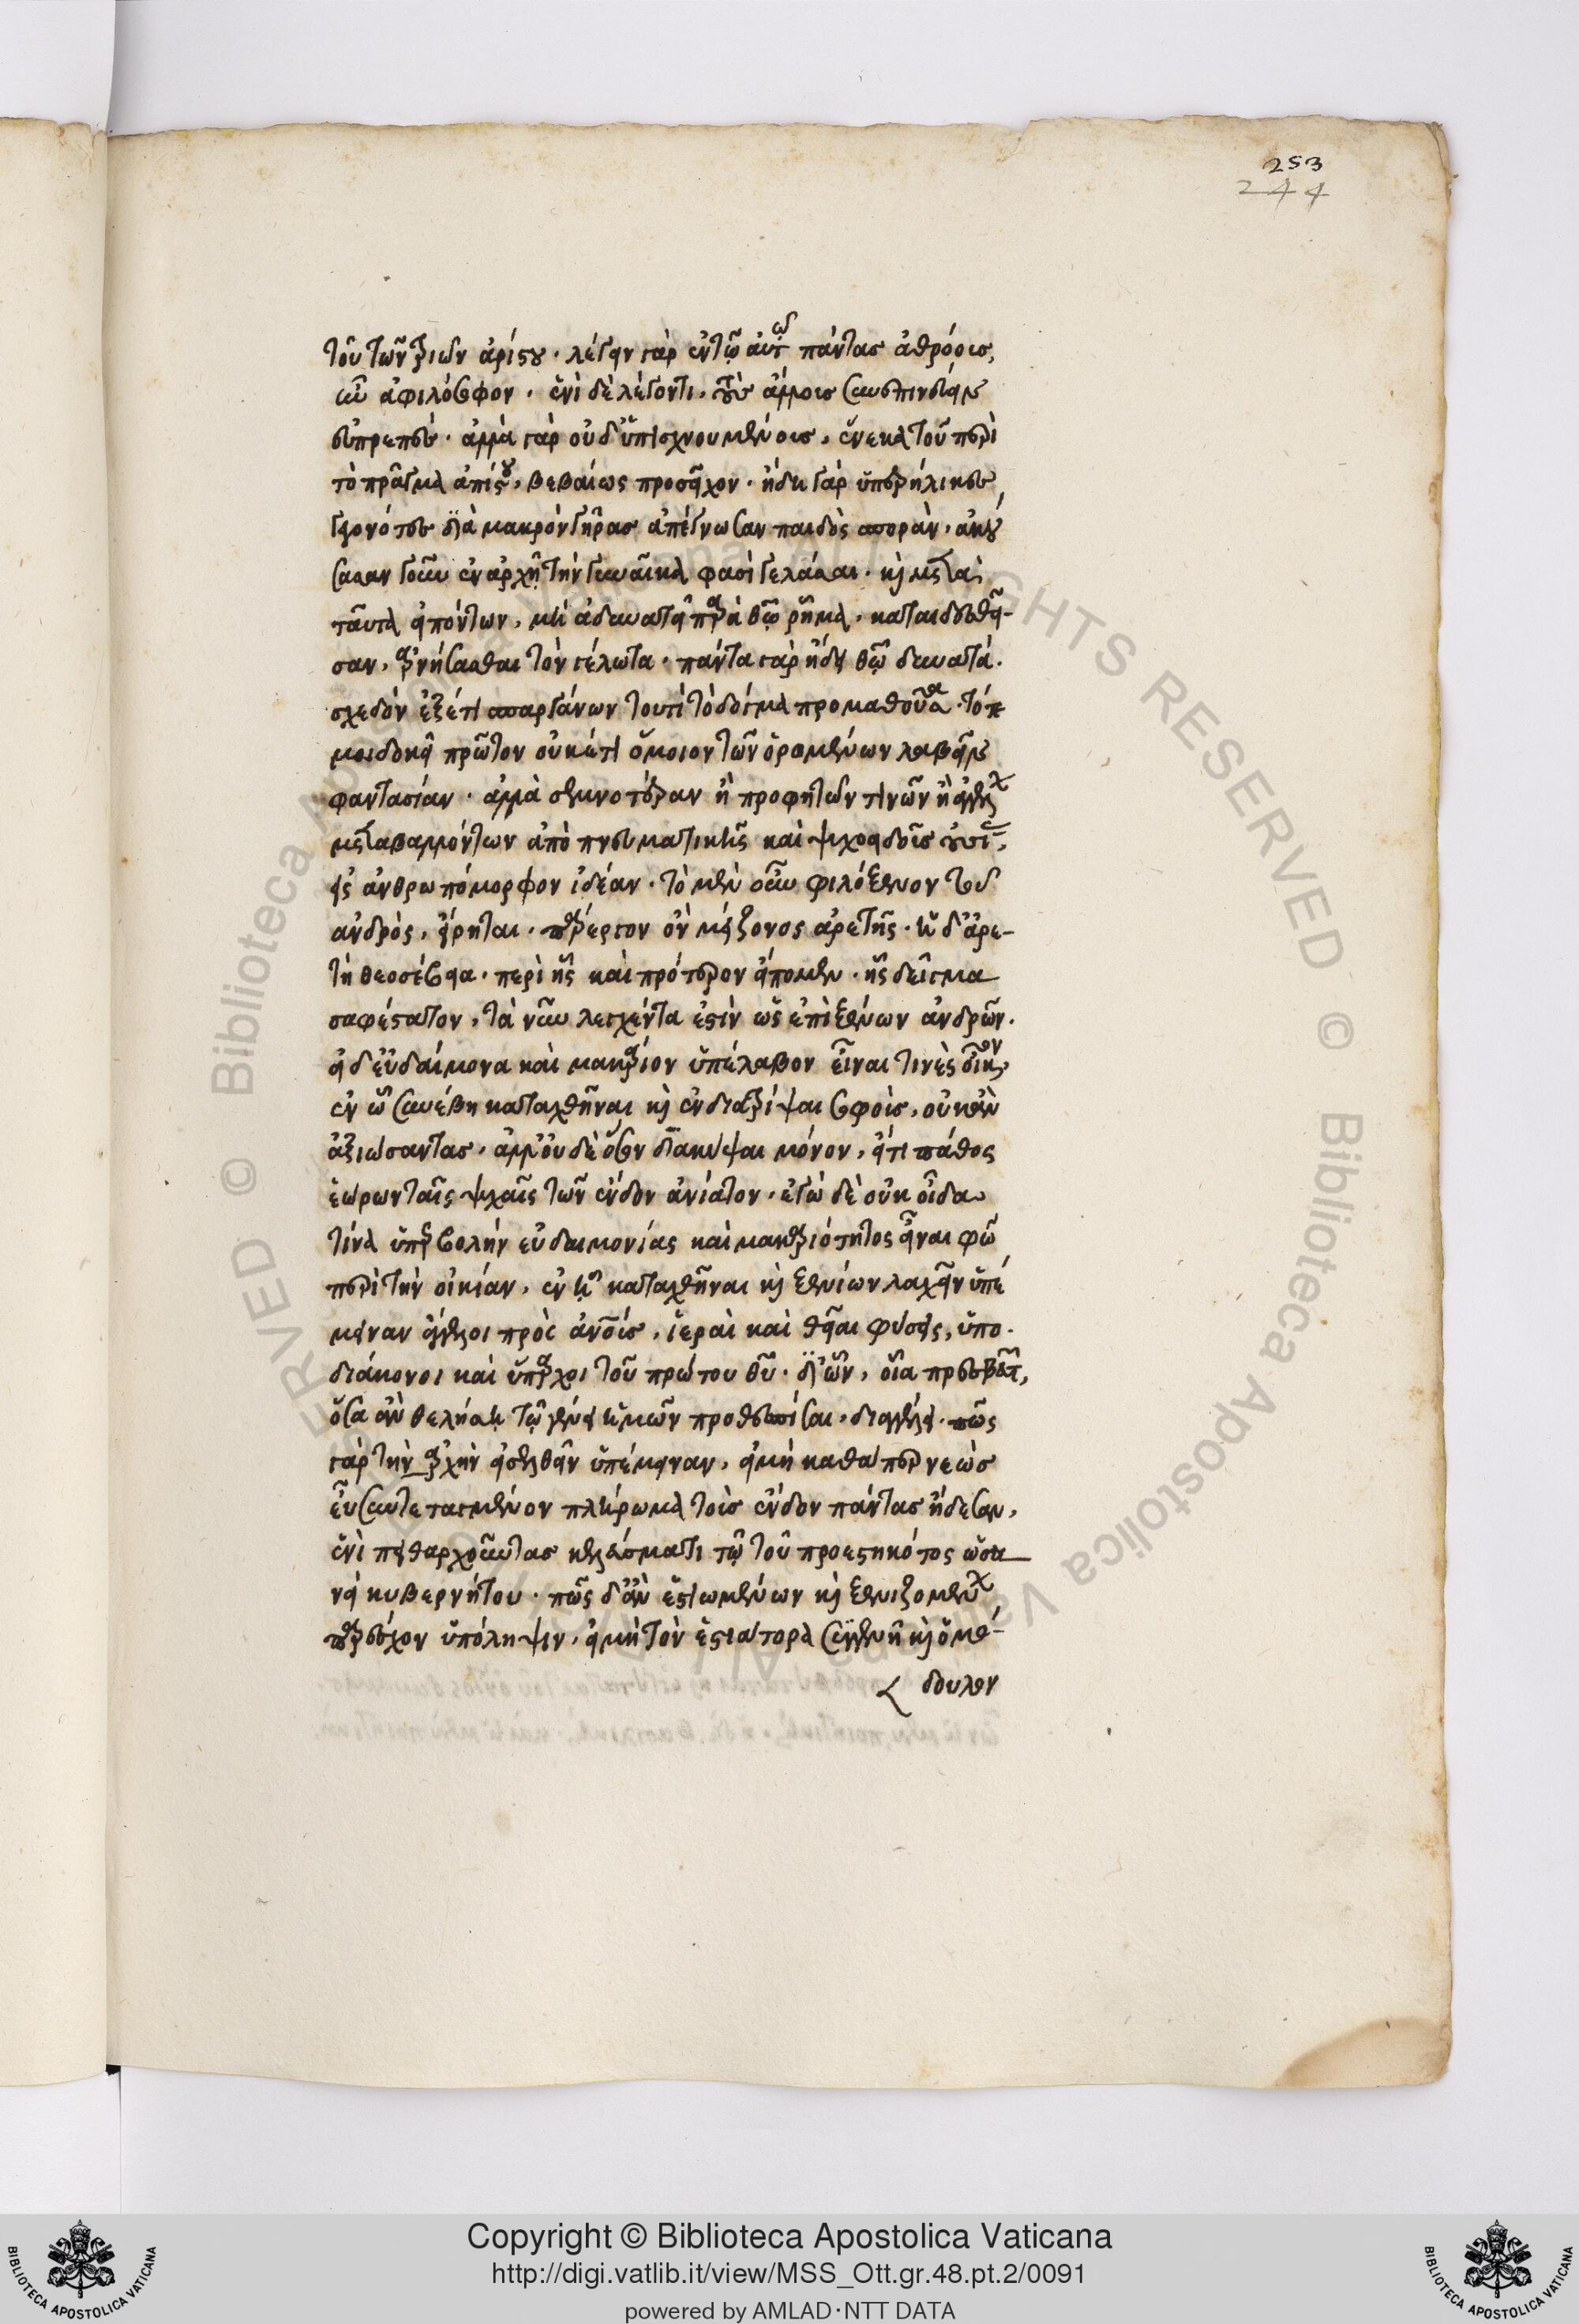 253
244
τοῦ τῶν τριῶν ἀρίστου. λέγειν γὰρ ἐν τῷ αὐτῷ πάντας ἀθρόους,
ἦν ἀφιλόσοφον. ἑνὶ δὲ λέγοντι, τοὺς ἄλλους συνεπινεύειν
εὐπρεπές. ἀλλὰ γὰρ οὐδ' ὑπισχνουμένοις, ἕνεκα τοῦ περὶ
τὸ πρᾶγμα ἀπίστου, βεβαίως προσεῖχον. ἤδη γὰρ ὑπερήλικες
γεγονότες διὰ μακρὸν γῆρας ἀπέγνωσαν παιδὸς σποράν. ἀκού
σασαν γοῦν ἐν ἀρχῇ τὴν γυναῖκα φασὶ γελάσαι. καὶ μετὰ
ταῦτα εἰπόντων, μὴ ἀδυνατεῖ παρὰ θεῷ ῥῆμα, καταιδεσθεῖ-
σαν, ἀρνήσασθαι τὸν γέλωτα. πάντα γὰρ ᾔδει θεῷ δυνατά.
σχεδὸν ἐξέτι σπαργάνων τουτὶ τὸ δόγμα προμαθοῦσα. τότε
μοι δοκεῖ πρῶτον οὐκέτι ὅμοιον τῶν ὁρωμένων λαβεῖν
φαντασίαν. ἀλλὰ σεμνοτέραν ἢ προφητῶν τινῶν ἢ ἀγγέλων
μεταβαλλόντων ἀπὸ πνευματικῆς καὶ ψυχοειδοῦς οὐσίας,
εἰς ἀνθρωπόμορφον ἰδέαν. τὸ μὲν οὖν φιλόξενον τοῦ
ἀνδρὸς, εἴρηται. πάρεργον ὂν μείζονος ἀρετῆς. ἡ δ' ἀρε-
τὴ θεοσέβεια. περὶ ἧς καὶ πρότερον εἴπομεν. ἧς δεῖγμα
σαφέστατον, τὰ νῦν λεχθέντα ἐστὶν ὡς ἐπὶ ξένων ἀνδρῶν.
εἰ δ' εὐδαίμονα καὶ μακάριον ὑπέλαβον εἶναι τινὲς οἶκον
ἐν ᾧ συνέβη καταχθῆναι καὶ ἐνδιατρίψαι σοφοὺς, οὐκ ἂν
ἀξιώσαντας, ἀλλ' οὐδὲ ὅσον διακύψαι μόνον, εἴ τι πάθος
ἑώρων ταῖς ψυχαῖς τῶν ἔνδον ἀνίατον. ἐγὼ δὲ οὐκ οἶδα
τίνα ὑπερβολὴν εὐδαιμονίας καὶ μακαριότητος εἶναι φῶ
περὶ τὴν οἰκίαν, ἐν ᾗ καταχθῆναι καὶ ξενίων λαχεῖν ὑπέ
μειναν ἄγγελοι πρὸς ἀνθρώπους, ἱεραὶ καὶ θεῖαι φύσεις, ὑπο-
διάκονοι καὶ ὕπαρχοι τοῦ πρώτου θεοῦ. δι' ὧν, οἷα πρεσβευτῶν,
ὅσα ἂν θελήσῃ τῷ γένει ἡμῶν προθεσπίσαι, διαγγέλλει. πῶς
γὰρ τὴν ἀρχὴν εἰσελθεῖν ὑπέμειναν, εἰ μὴ καθάπερ νεὼς
εὖ συντεταγμένον πλήρωμα τοὺς ἔνδον πάντας ᾔδεσαν,
ἑνὶ πειθαρχοῦντας κελεύσματι τῷ τοῦ προεστηκότος ὡσα
νεὶ κυβερνήτου. πῶς δ' ἂν ἑστιωμένων καὶ ξενιζομένων
παρέσχον ὑπόληψιν, εἰ μὴ τὸν ἑστιάτορα συγγενῆ καὶ ὁμό-
δουλον
Copyright © Biblioteca Apostolica Vaticana
http://digi.vatlib.it/view/MSS_Ott.gr.48.pt.2/0091
powered by AMLAD·NTT DATA